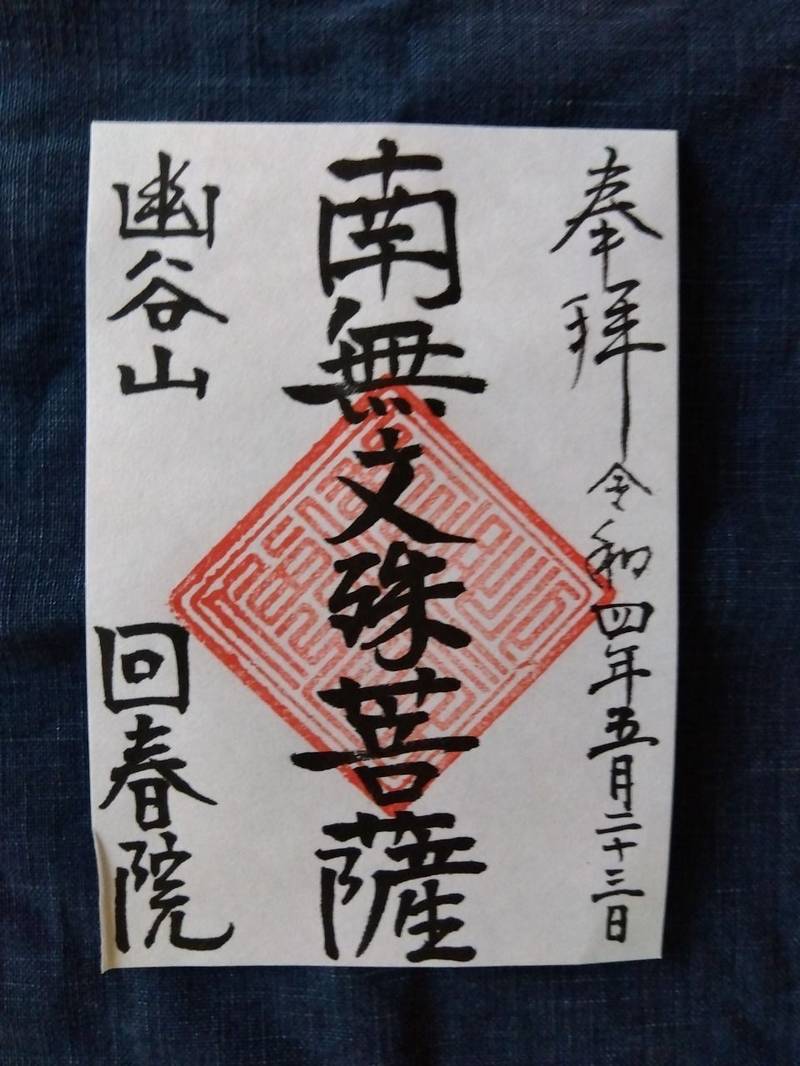 奉拜 令和四年五月二十三日
南無文殊菩薩
幽谷山 回春院